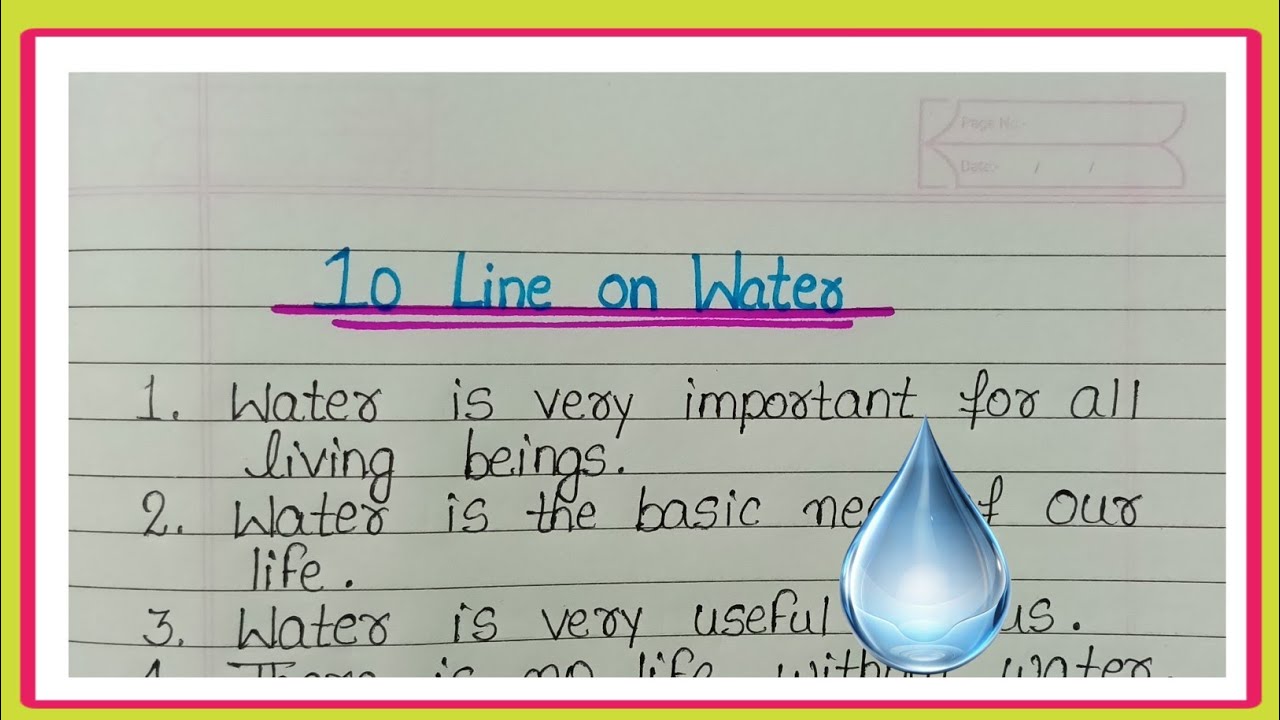 Page No.-
Date:- / /
10 Line on Water
1. Water is very important for all
living beings.
2. Water is the basic of our
life.
3. Water is very useful us.
4. There is no life without water.